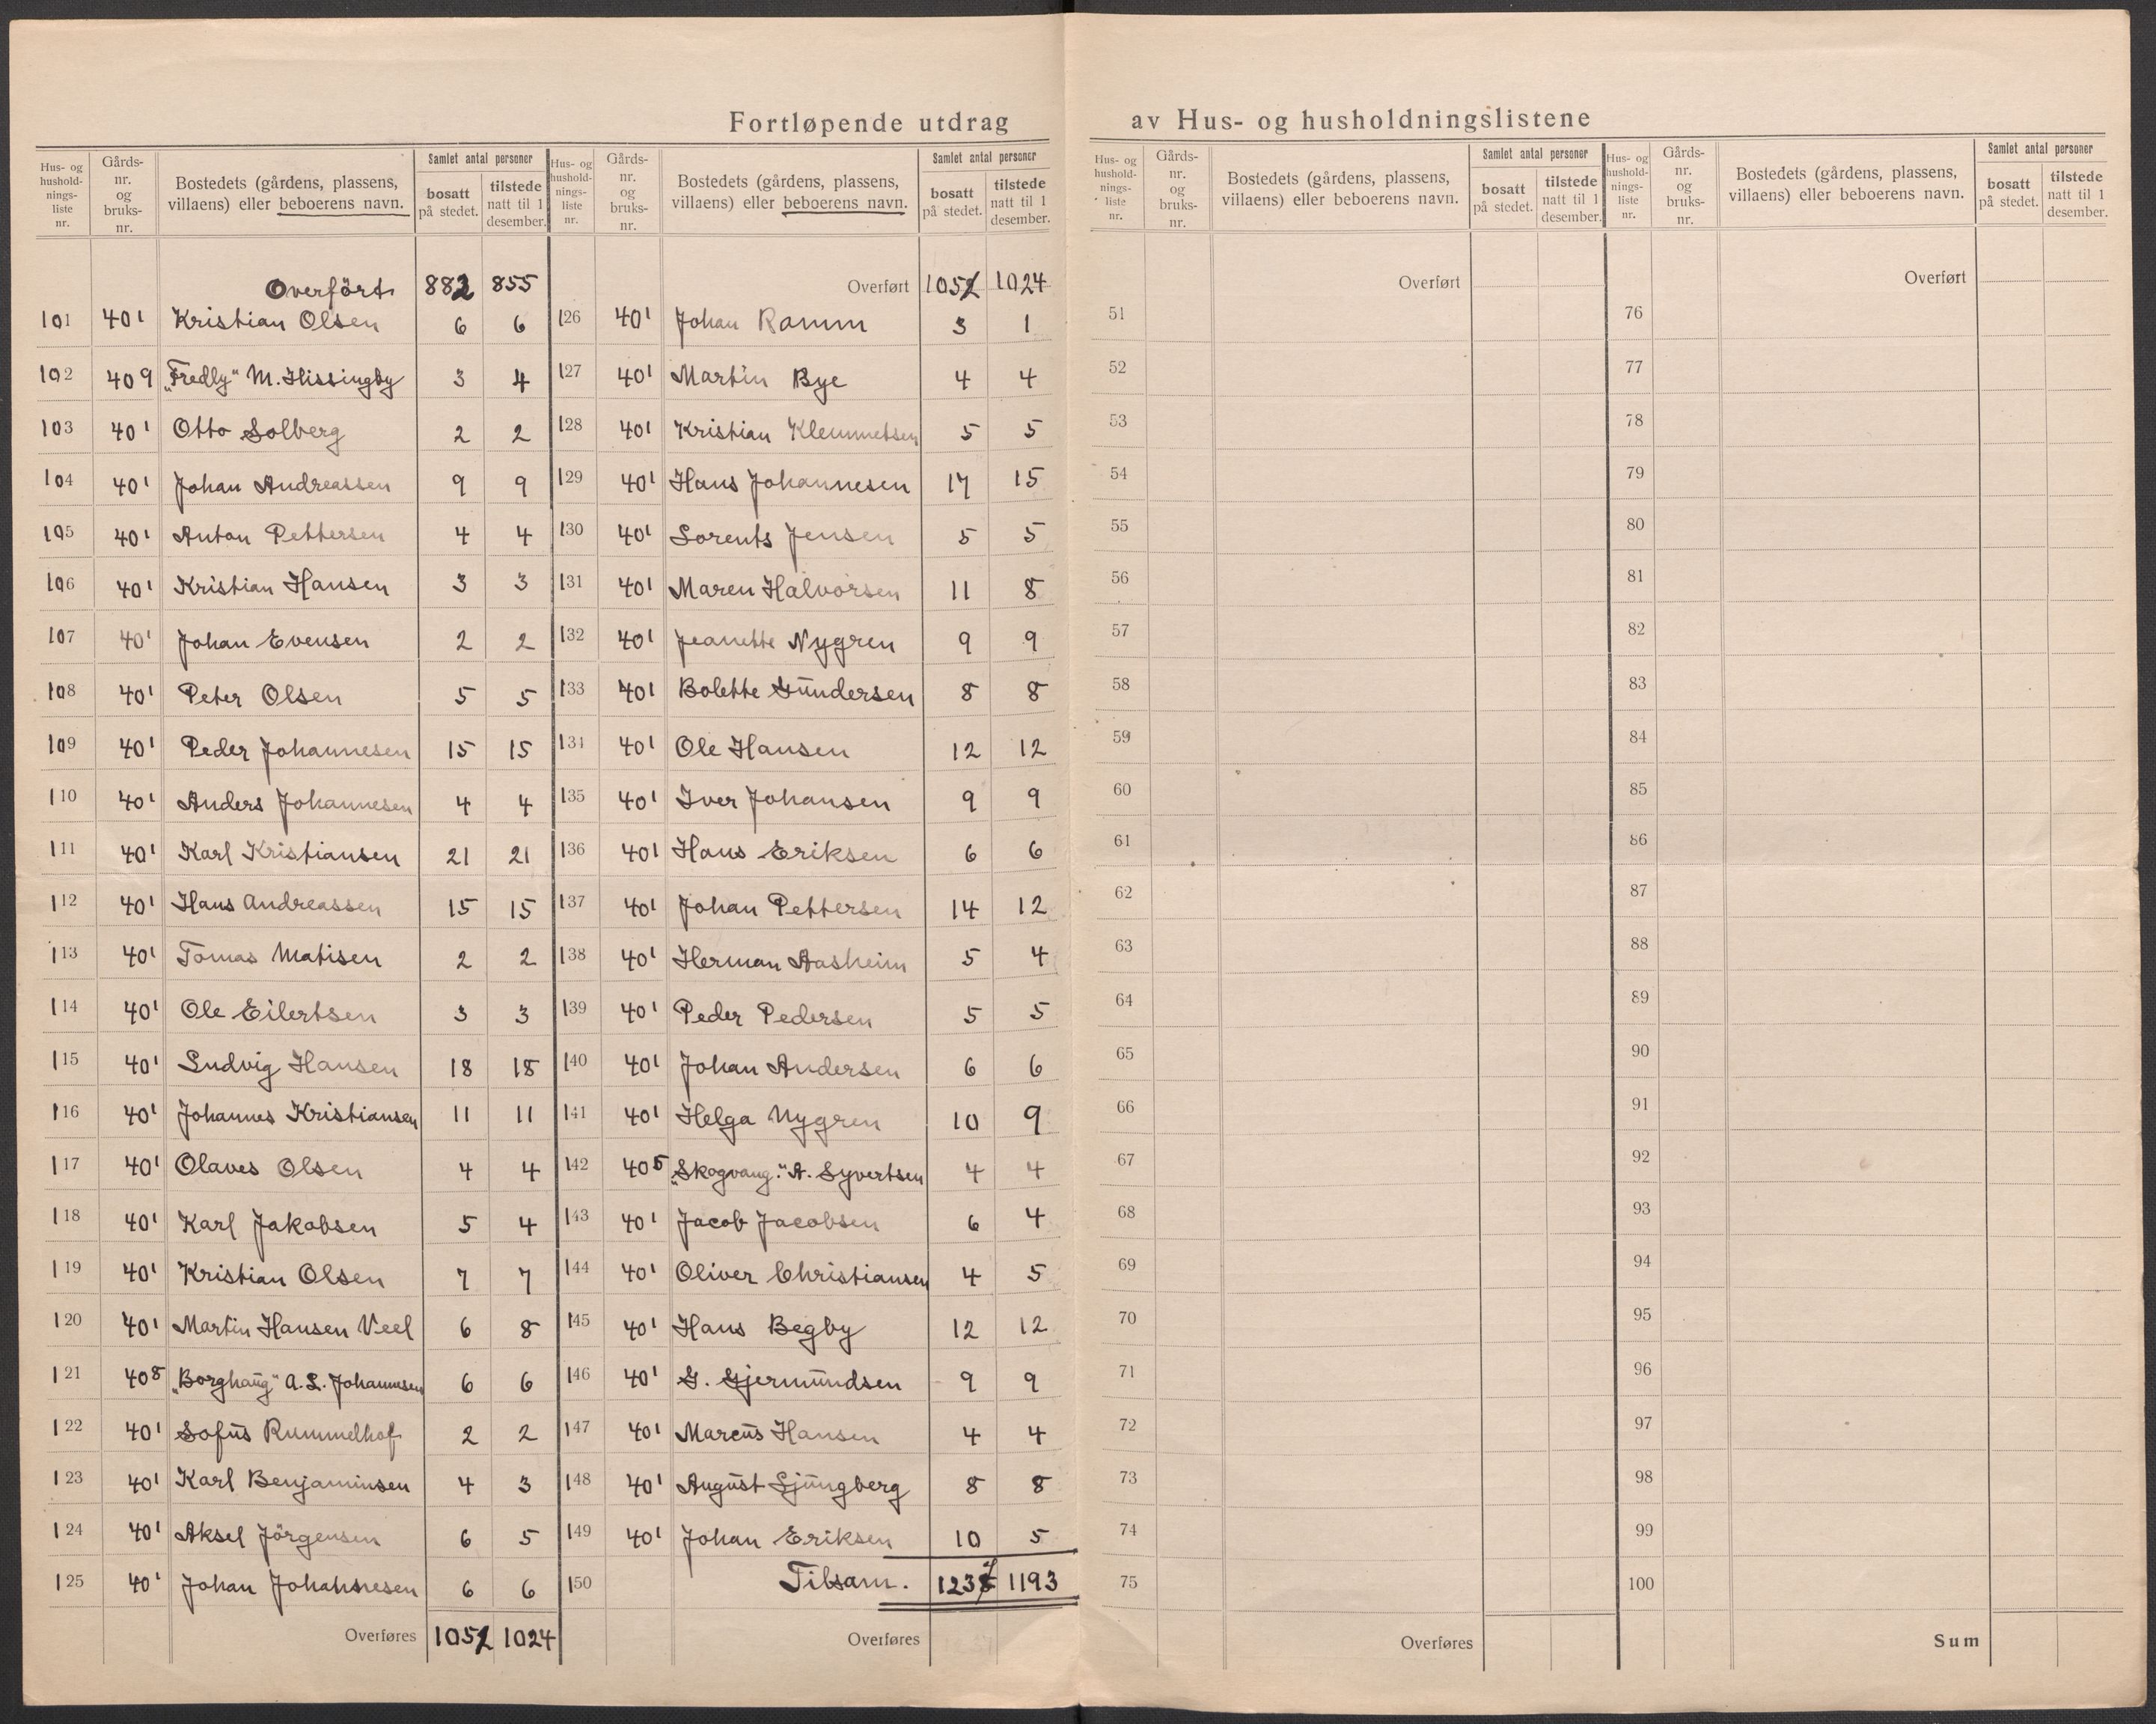 Fortløpende utdrag av Hus- og husholdningslistene
Hus- og hushold-nings-liste nr. | Gårds-nr. og bruks-nr. | Bostedets (gårdens, plassens, villaens) eller beboerens navn. | Samlet antal personer | bosatt på stedet. | tilstede natt til 1 desember.
Overført 882 855
101 40 1 Kristian Olsen 6 6
102 40 9 "Fredly" M. Hissingby 3 4
103 40 1 Otto Solberg 2 2
104 40 1 Johan Andreassen 9 9
105 40 1 Anton Pettersen 4 4
106 40 1 Kristian Hansen 3 3
107 40 1 Johan Evensen 2 2
108 40 1 Peter Olsen 5 5
109 40 1 Peder Johannesen 15 15
110 40 1 Anders Johannesen 4 4
111 40 1 Karl Kristiansen 21 21
112 40 1 Hans Andreassen 15 15
113 40 1 Tomas Matisen 2 2
114 40 1 Ole Eilertsen 3 3
115 40 1 Ludvig Hansen 18 18
116 40 1 Johannes Kristiansen 11 11
117 40 1 Olaves Olsen 4 4
118 40 1 Karl Jakobsen 5 4
119 40 1 Kristian Olsen 7 7
120 40 1 Martin Hansen Veel 6 8
121 40 8 "Borghaug" A. L. Johannesen 6 6
122 40 1 Sofus Rummelhof 2 2
123 40 1 Karl Benjaminsen 4 3
124 40 1 Aksel Jörgensen 6 5
125 40 1 Johan Johannesen 6 6
Overføres 1051 1024
Hus- og hushold-nings-liste nr. | Gårds-nr. og bruks-nr. | Bostedets (gårdens, plassens, villaens) eller beboerens navn. | Samlet antal personer | bosatt på stedet. | tilstede natt til 1 desember.
Overført 1051 1024
126 40 1 Johan Ramm 3 1
127 40 1 Martin Bye 4 4
128 40 1 Kristian Klemmetsen 5 5
129 40 1 Hans Johannesen 17 15
130 40 1 Lorents Jensen 5 5
131 40 1 Maren Halvorsen 11 8
132 40 1 Jeanette Nygren 9 9
133 40 1 Bolette Gundersen 8 8
134 40 1 Ole Hansen 12 12
135 40 1 Iver Johansen 9 9
136 40 1 Hans Eriksen 6 6
137 40 1 Johan Pettersen 14 12
138 40 1 Herman Aasheim 5 4
139 40 1 Peder Pedersen 5 5
140 40 1 Johan Andersen 6 6
141 40 1 Helga Nygren 10 9
142 40 5 "Skogvang." A. Syvertsen 4 4
143 40 1 Jacob Jacobsen 6 4
144 40 1 Oliver Christiansen 4 5
145 40 1 Hans Begby 12 12
146 40 1 G. Gjermundsen 9 9
147 40 1 Marcus Hansen 4 4
148 40 1 August Ljungberg 8 8
149 40 1 Johan Eriksen 10 5
150 Tilsam. 1237 1193
Overføres
Hus- og hushold-nings-liste nr. | Gårds-nr. og bruks-nr. | Bostedets (gårdens, plassens, villaens) eller beboerens navn. | Samlet antal personer | bosatt på stedet. | tilstede natt til 1 desember.
Overført
51
52
53
54
55
56
57
58
59
60
61
62
63
64
65
66
67
68
69
70
71
72
73
74
75
Overføres
Hus- og hushold-nings-liste nr. | Gårds-nr. og bruks-nr. | Bostedets (gårdens, plassens, villaens) eller beboerens navn. | Samlet antal personer | bosatt på stedet. | tilstede natt til 1 desember.
Overført
76
77
78
79
80
81
82
83
84
85
86
87
88
89
90
91
92
93
94
95
96
97
98
99
100
Sum